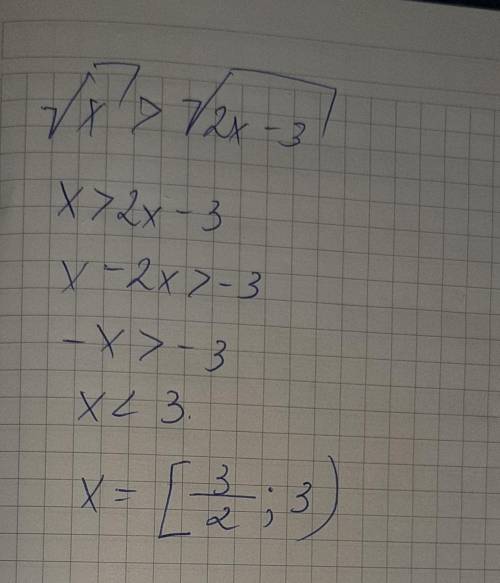 √x > √2x - 3
x > 2x - 3
x - 2x > -3
-x > -3
x < 3.
x = [3/2 ; 3)